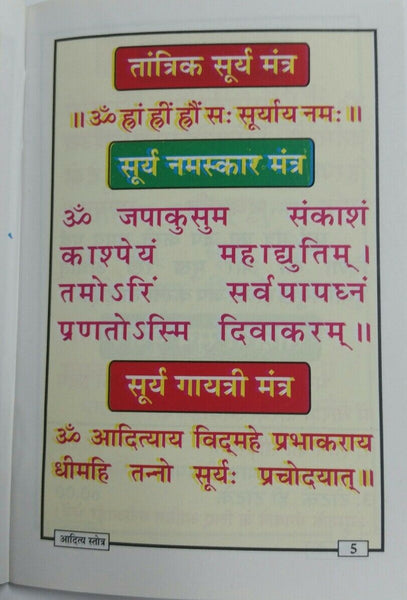 तांत्रिक सूर्य मंत्र
॥ ॐ ह्रां ह्रीं ह्रौं सः सूर्याय नमः ॥
सूर्य नमस्कार मंत्र
ॐ जपाकुसुम संकाशं
काश्पेयं महाद्युतिम् ।
तमोऽरिं सर्वपापघ्नं
प्रणतोऽस्मि दिवाकरम् ॥
सूर्य गायत्री मंत्र
ॐ आदित्याय विद्महे प्रभाकराय
धीमहि तन्नो सूर्यः प्रचोदयात् ॥
आदित्य स्तोत्र
5